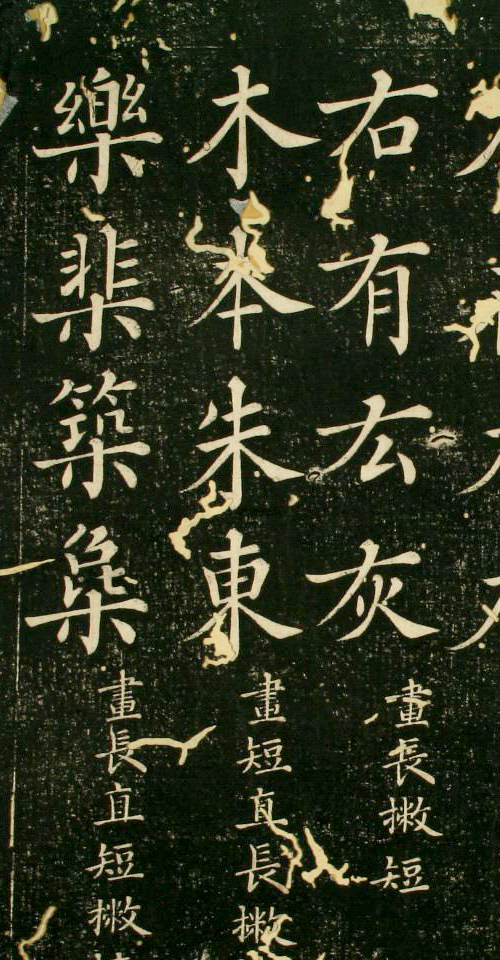 右有厷灰畫長撇短
木本朱東畫短直長撇
樂棐築畫長直短撇